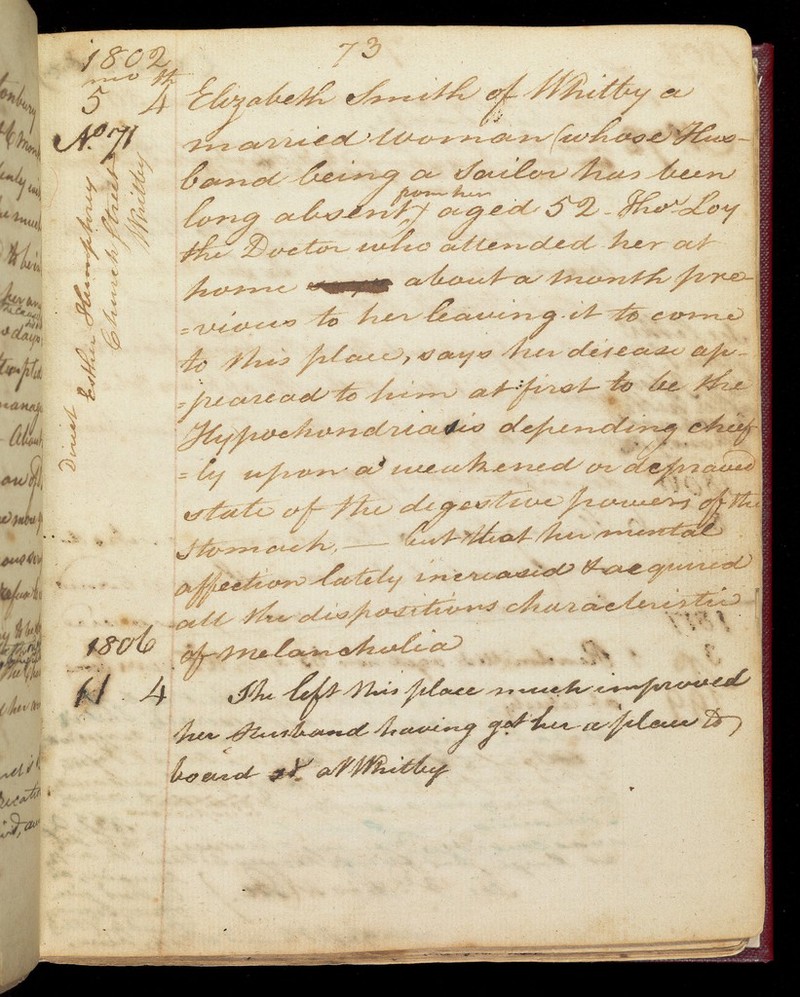 73
1802
mo th
5 4
No 71
Elizabeth Smith of Whitby a
married woman (whose Hus-
band being a Sailor has been
long absent from her) aged 52 - Thos Loy
the Doctor who attended her at
home about a month pre-
=vious to her leaving it to come
to this place, says her disease ap-
=pearead to him at first to be the
Hypochondriasis depending chief
=ly upon a weakened or depraved
state of the digestive powers of the
Stomach, — but that her mental
affection lately increased & acquired
all the dispositions characteristic
of melancholia
1806
11 4
She left this place much improved
her Husband having got her a place to
board at Whitby
Direct
Esther Humphrey
Church Street
Whitby